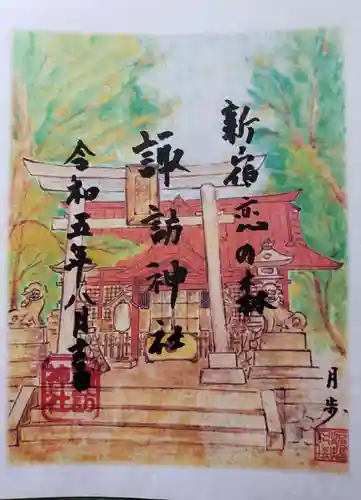 新宿恋の森
諏訪神社
令和五年八月
諏訪
神社
月歩